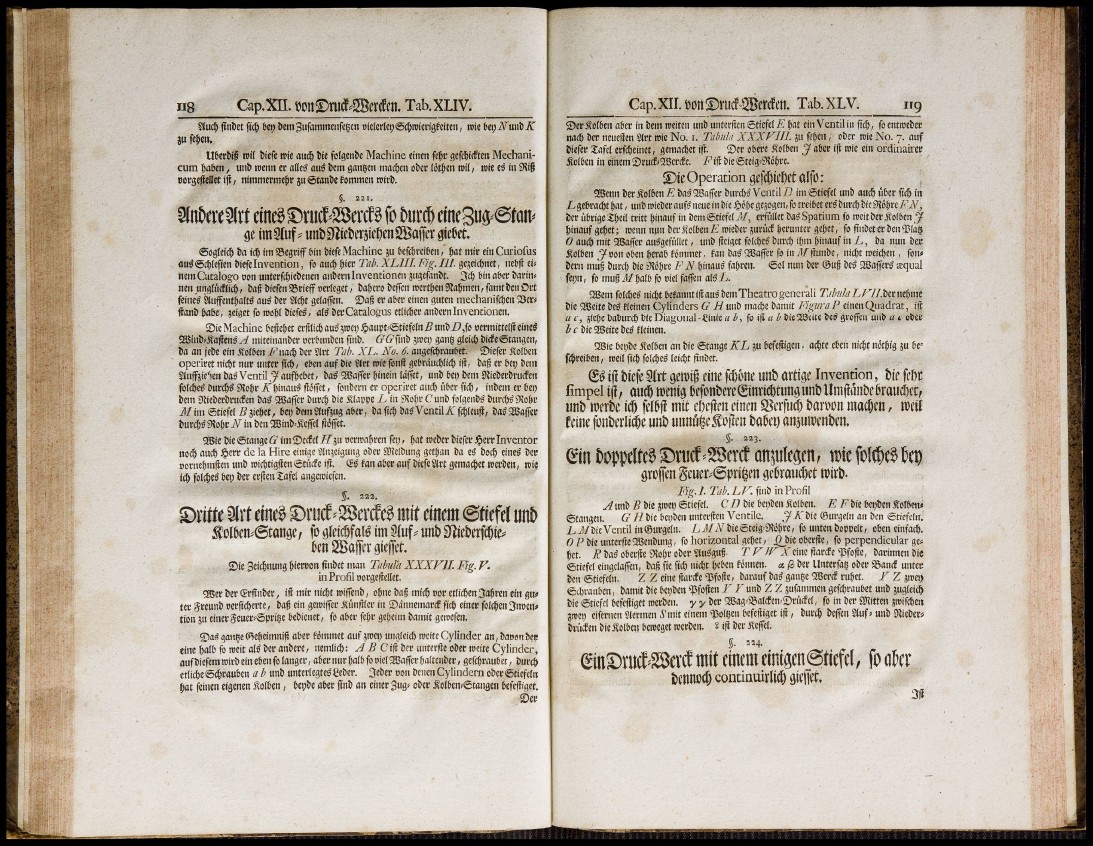 118 Cap. XII. von Druck-Wercken. Tab. XLIV.
Auch findet sich bey dem Zusammensetzen vielerley Schwierigkeiten, wie bey N und K
zu sehen.
Uberdiß wil diese wie auch die folgende Machine einen sehr geschickten Mechani-
cum haben, und wenn er alles aus dem gantzen machen oder löthen wil, wie es in Riß
vorgestellet ist, nimmermehr zu Stande kommen wird.
§. 221.
Andere Art eines Druck-Wercks so durch eine Zug-Stan-
ge im Auf- und Niederziehen Wasser giebet.
Sogleich da ich im Begriff bin diese Machine zu beschreiben, hat mir ein Curiosus
aus Schlesien diese Invention, so auch hier Tab. XLIII. Fig. III. gezeichnet, nebst ei-
nem Catalogo von unterschiedenen andern Inventionen zugesandt. Ich bin aber darin-
nen unglücklich, daß diesen Brieff verleget, dahero dessen werthen Nahmen, samt den Ort
seines Auffenthalts aus der Acht gelassen. Daß er aber einen guten mechanischen Ver-
stand habe, zeiget so wohl dieses, als der Catalogus etlicher andern Inventionen.
Die Machine bestehet erstlich aus zwey Haupt-Stiefeln B und D, so vermittelst eines
Wind-Kastens A miteinander verbunden sind. GG sind zwey gantz gleich dicke Stangen,
da an jede ein Kolben F nach der Art Tab. XL. No. 6. angeschraubet. Dieser Kolben
operiret nicht nur unter sich, eben auf die Art wie sonst gebräuchlich ist, daß er bey dem
Auffziehen das Ventil J aufhebet, das Wasser hinein lässet, und bey dem Niederdrucken
solches durchs Rohr K hinaus stösset, sondern er operiret auch über sich, indem er bey
dem Niederdrucken das Wasser durch die Klappe L in Rohr C und folgends durchs Rohr
M im Stiefel B ziehet, bey dem Aufzug aber, da sich das Ventil K schleust, das Wasser
durchs Rohr N in den Wind-Kessel stösset.
Wie die Stange G im Deckel H zu verwahren sey, hat weder dieser Herr Inventor
noch auch Herr de la Hire einige Anzeigung oder Meldung gethan da es doch eines der
vornehmsten und wichtigsten Stücke ist. Es kan aber auf diese Art gemachet werden, wie
ich solches bey der ersten Tafel angewiesen.
§. 222.
Dritte Art eines Druck-Werckes mit einem Stiefel und
Kolben-Stange, so gleichfals im Auf- und Niederschie-
ben Wasser giesset.
Die Zeichnung hiervon findet man Tabula XXXVII. Fig. V.
in Profil vorgestellet.
Wer der Erfinder, ist mir nicht wissend, ohne daß mich vor etlichen Jahren ein gu-
ter Freund versicherte, daß ein gewisser Künstler in Dännemarck sich einer solchen Inven-
tion zu einer Feuer-Spritze bedienet, so aber sehr geheim damit gewesen.
Das gantze Geheimniß aber kömmet auf zwey ungleich weite Cylinder an, davon der
eine halb so weit als der andere, nemlich: A B C ist der unterste oder weite Cylinder,
auf diesem wird ein eben so langer, aber nur halb so viel Wasser haltender, geschraubet, durch
etliche Schrauben a b und unterlegtes Leder. Jeder von denen Cylindern oder Stiefeln
hat seinen eigenen Kolben, beyde aber sind an einer Zug- oder Kolben-Stangen befestiget.
Der
Cap. XII. von Druck-Wercken. Tab. XLV. 119
Der Kolben aber in dem weiten und untersten Stiefel E hat ein Ventil in sich, so entweder
nach der neuesten Art wie No. 1. Tabula XXXVIII. zu sehen, oder wie No. 7. auf
dieser Tafel erscheinet, gemachet ist. Der obere Kolben J aber ist wie ein ordinairer
Kolben in einem Druck-Wercke. F ist die Steig-Röhre.
Die Operation geschiehet also:
Wenn der Kolben E das Wasser durchs Ventil D im Stiefel und auch über sich in
L gebracht hat, und wieder aufs neue in die Höhe gezogen, so treibet ers durch die Röhre F N,
der übrige Theil tritt hinauf in dem Stiefel M, erfüllet das Spatium so weit der Kolben J
hinauf gehet; wenn nun der Kolben E wieder zurück herunter gehet, so findet er den Platz
O auch mit Wasser ausgefüllet, und steiget solches durch ihn hinauf in L, da nun der
Kolben J von oben herab kömmet, kan das Wasser so in M stunde, nicht weichen, son-
dern muß durch die Röhre F N hinaus fahren. Sol nun der Guß des Wassers æqual
seyn, so muß M halb so viel fassen als L.
Wem solches nicht bekannt ist aus dem Theatro generali Tabula LVII. der nehme
die Weite des kleinen Cylinders G H und mache damit Figura P einen Quadrat, ist
a c, ziehe dadurch die Diagonal-Linie a b, so ist a b die Weite des grossen und a c oder
b c die Weite des kleinen.
Wie beyde Kolben an die Stange KL zu befestigen, achte eben nicht nöthig zu be-
schreiben, weil sich solches leicht findet.
Es ist diese Art gewiß eine schöne und artige Invention, die sehr
simpel ist, auch wenig besondere Einrichtung und Umstände brauchet,
und werde ich selbst mit ehesten einen Versuch darvon machen, weil
keine sonderliche und unnütze Kosten dabey anzuwenden.
§. 223.
Ein doppeltes Druck-Werck anzulegen, wie solches bey
grossen Feuer-Spritzen gebrauchet wird.
Fig. I. Tab. LV. sind in Profil
A und B die zwey Stiefel. C D die beyden Kolben. E F die beyden Kolben-
Stangen. G H die beyden untersten Ventile. J K die Gurgeln an den Stiefeln.
L M die Ventil in Gurgeln. L M N die Steig-Röhre, so unten doppelt, oben einfach.
O P die unterste Wendung, so horizontal gehet, Q die oberste, so perpendicular ge-
het. R das oberste Rohr oder Ausguß. T V W X eine starcke Pfoste, darinnen die
Stiefel eingelassen, daß sie sich nicht heben können. α β der Untersatz oder Banck unter
den Stiefeln. Z Z eine starcke Pfoste, darauf das gantze Werck ruhet. Y Z zwey
Schrauben, damit die beyden Pfosten V V und Z Z zusammen geschraubet und zugleich
die Stiefel befestiget werden. γ γ der Wag-Balcken-Drückel, so in der Mitten zwischen
zwey eisernen Aermen S mit einem Poltzen befestiget ist, durch dessen Auf- und Nieder-
drücken die Kolben beweget werden. 2 ist der Kessel.
§. 224.
Ein Druck-Werck mit einem einigen Stiefel, so aber
dennoch continuirlich giesset.
Ist